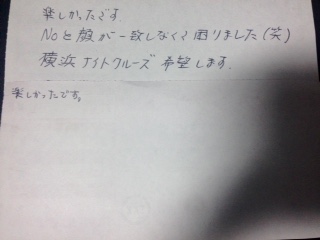 楽しかったです.
Noと顔が一致しなくて困りました(笑)
横浜ナイトクルーズ希望します.
楽しかったです。